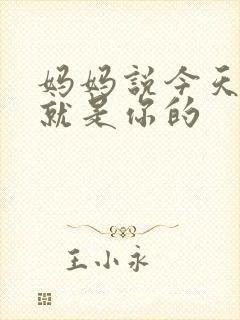 妈妈説今天
就是你的
王小永